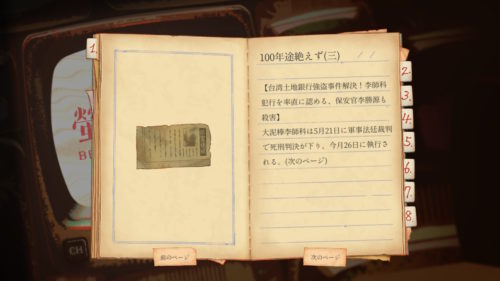 1.
100年途絶えず(三)
【台湾土地銀行強盗事件解決！李師科
犯行を率直に認める、保安官李勝源も
殺害】
大泥棒李師科は5月21日に軍事法廷裁判
で死刑判決が下り、今月26日に執行さ
れる。(次のページ)
2.
3.
4.
5.
6.
7.
8.
前のページ
次のページ
CH